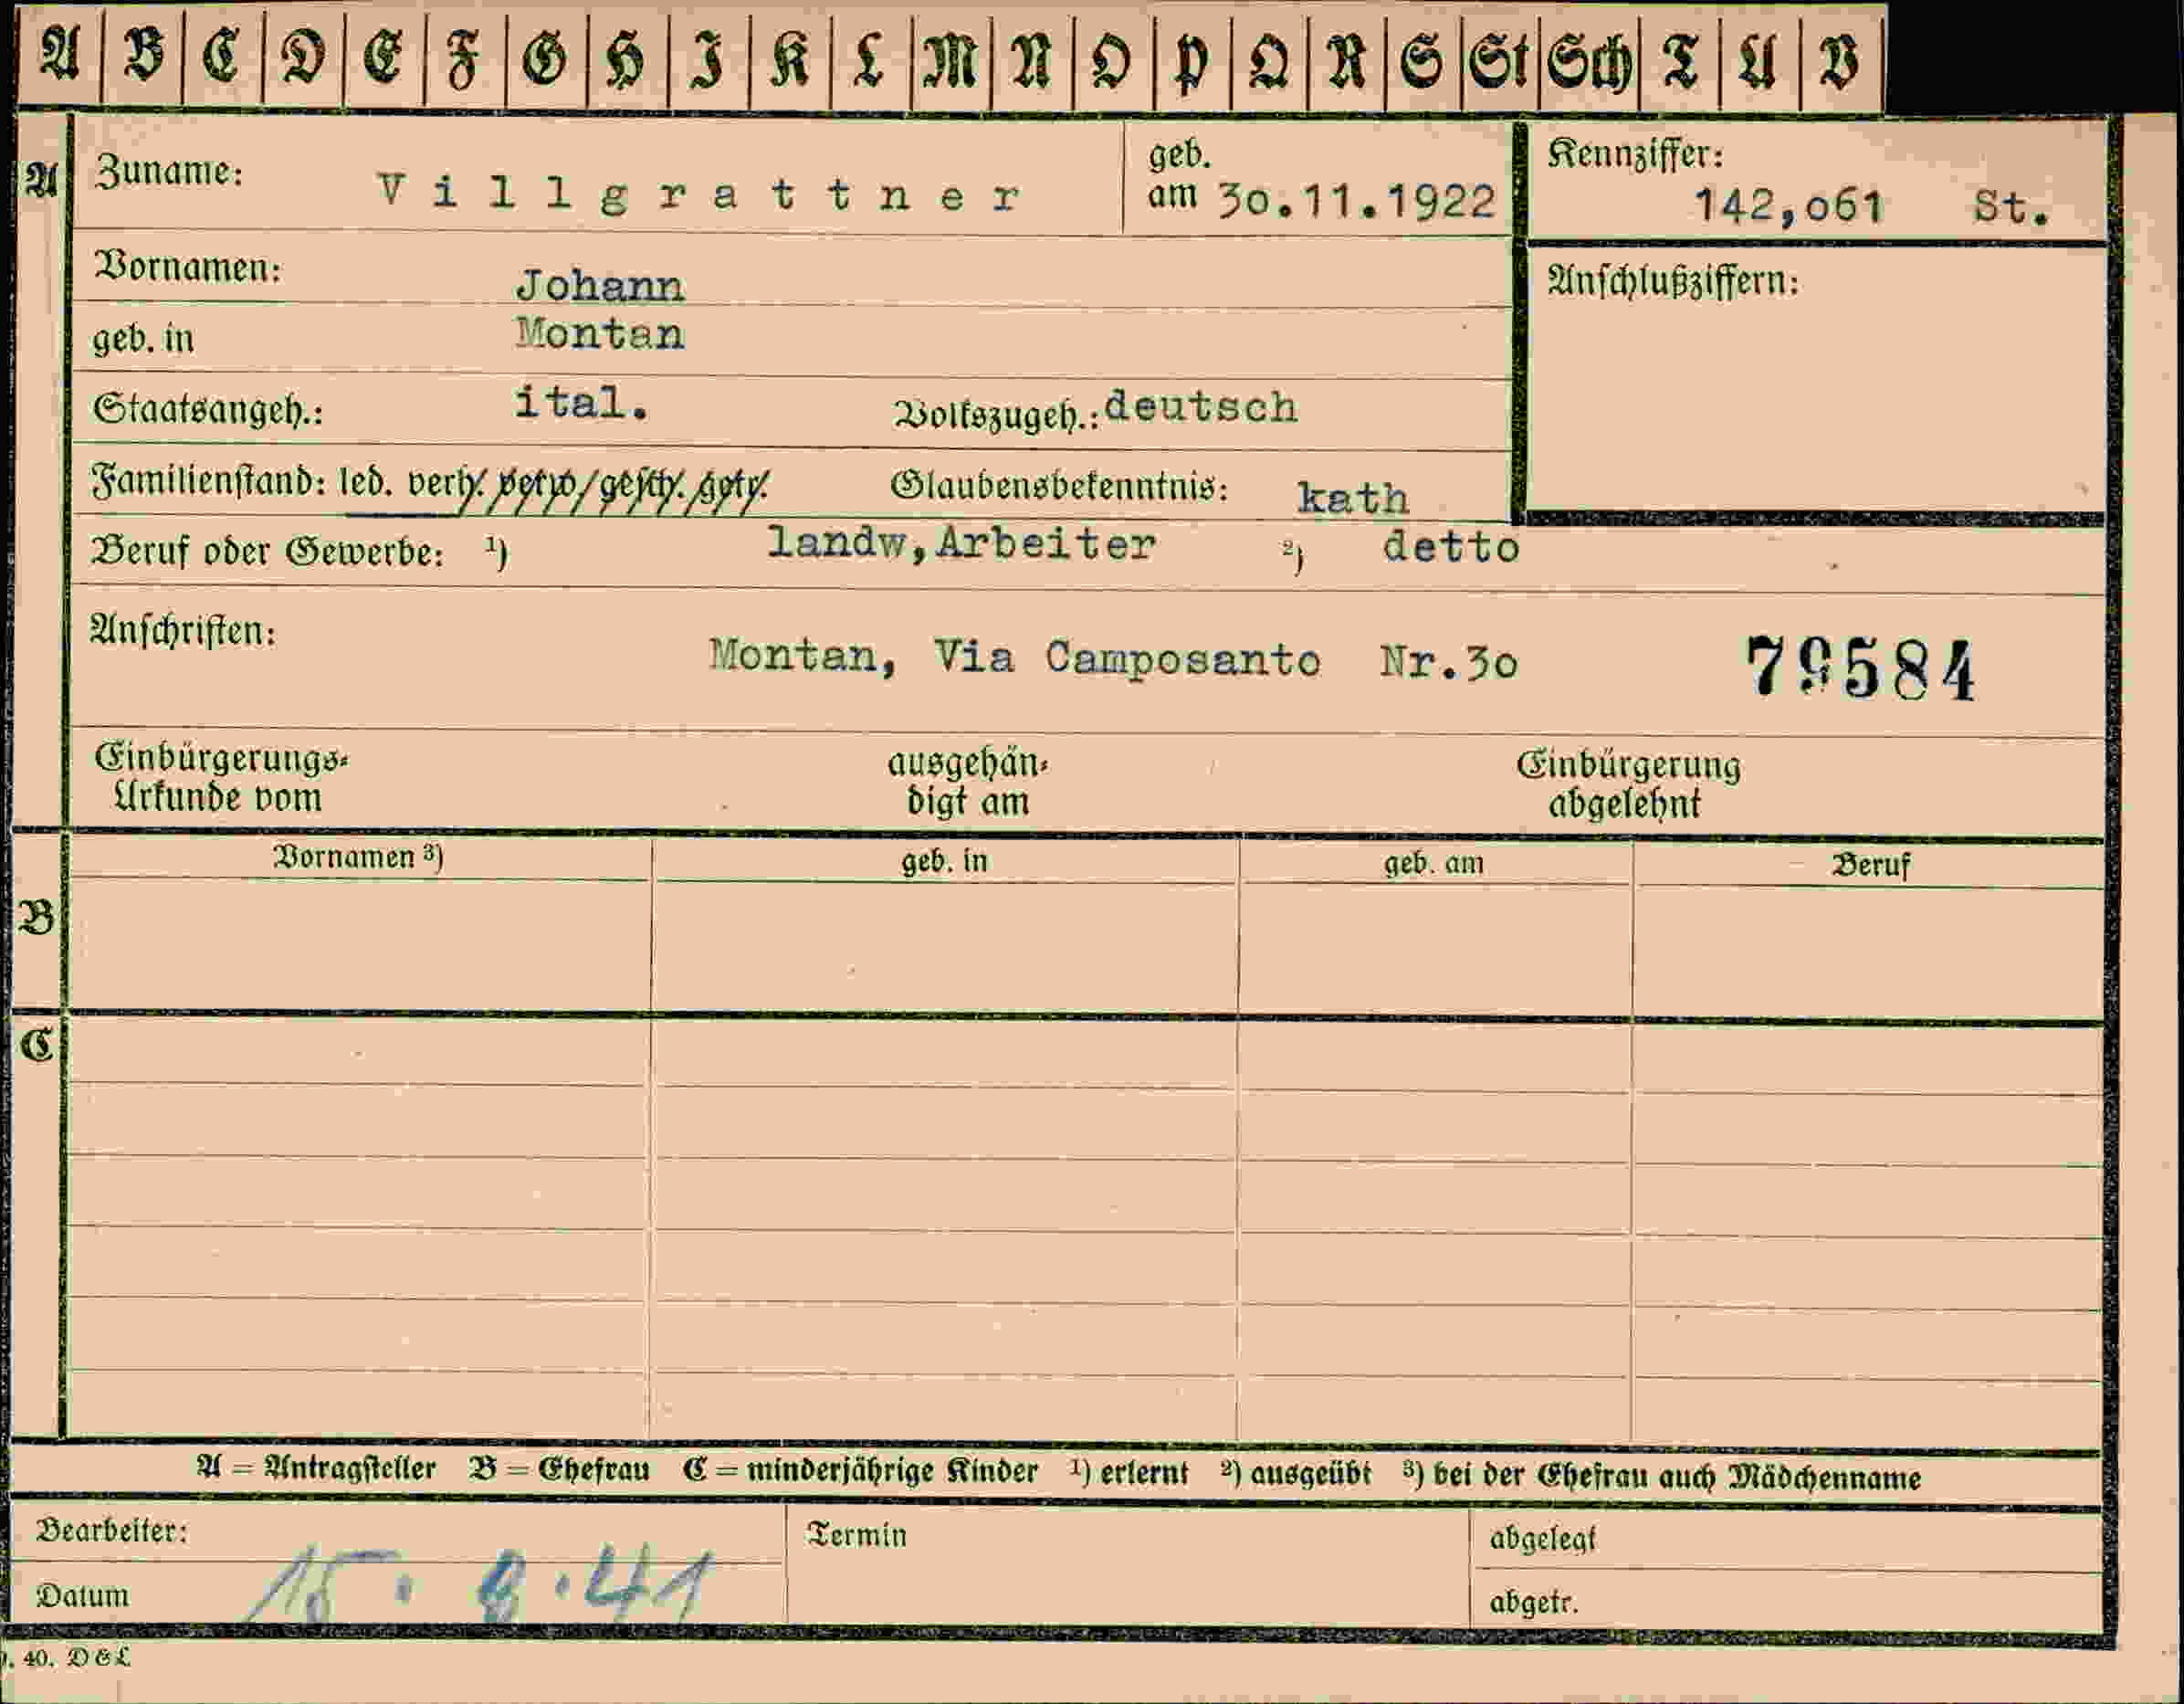 A B C D E F G H I K L M N O P Q R S St Sch T U V
A Zuname: Villgrattner geb. am 30.11.1922 Kennziffer: 142,o61 St.
Vornamen: Johann Anschlußziffern:
geb. in Montan
Staatsangeh.: ital. Volkszugeh.: deutsch
Familienstand: led. verh. verw. gesch. getr. Glaubensbekenntnis: kath
Beruf oder Gewerbe: ¹) landw,Arbeiter ²) detto
Anschriften: Montan, Via Camposanto Nr.3o 79584
Einbürgerungs- ausgehän- Einbürgerung
Urkunde vom digt am abgelehnt
Vornamen ³) geb. in geb. am Beruf
B
C
A = Antragsteller B = Ehefrau C = minderjährige Kinder ¹) erlernt ²) ausgeübt ³) bei der Ehefrau auch Mädchenname
Bearbeiter: Termin abgelegt
Datum 15. 8.41 abgetr.
40. D & L